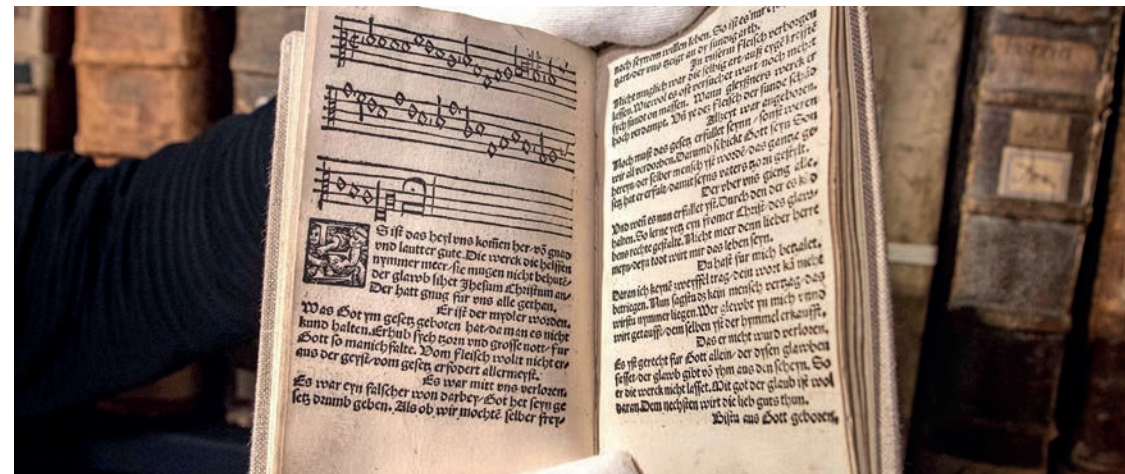 S ist das heyl vns kom̃en her/ võ gnad
vnd lautter gute. Die werck die helffen
nymmer meer/ sie mugen nicht behutẽ/
der glawb sihet Jhesum Christum an/
Der hatt gnug fur vns alle gethan.
Er ist der mydler worden.
Was Got ym gesetz geboten hat/ da man es nicht
kund halten. Erhub sych zorn vnd grosse nott/ fur
Gott so manichfalte. Vom fleisch wolt nicht er/
aus der geyst/ vom gesetz erfodert allermeyst.
Es war mitt vns verloren.
Es war eyn falscher won darbey/ Got het seyn ge
setz drumb geben. Als ob wir mochtẽ selber frey/
nach seynem willen leben. So ist es nur
zart/ der vns zeigt an dy sundig arth.
In vnserm fleisch verborgen
Nicht muglich war die selbig art/ auß eygen kreffte
lassen. Wiewol es offt versuchet wart/ noch mehrt
sych sund on massen. Wann gleyßners werck er
hoch verdampt. Vñ ye dez fleisch der sunde schãd
Allzeyt war angeboren.
Noch must das gesetz erfullet seynn/ sonst weren
wir all verdorben. Darumb schickt Gott seyn Son
hereyn/ der selber mensch yst wordẽ/ das gantze ge/
setz hat er erfult/ damit seyns vaters zorn gestylt.
Der vber vns gieng alle.
Vnd weñ es nun erfullet yst. Durch den der es kõd
halten. So lerne yetz eyn fromer Christ/ des glaw/
bens rechte gestalte. Nicht meer denn lieber herre
meyn/ deyn todt wirt mir das leben seyn.
Du hast fur mich betzalet.
Daran ich keynẽ zweyffel trag/ dein wort kã nicht
betriegen. Nun sagstu dz kein mensch verzag/ das
wirstu nymmer liegen. Wer glewbt yn mich vnnd
wirt getaufft/ dem selben yst der hymmel erkaufft.
Das er nicht wurd verloren.
Es yst gerecht fur Gott allein/ der dysen glawben
fasset/ der glawb gibt võ yhm aus den scheyn. So
er die werck nicht lasset. Mit got der glaub ist wol
daran. Dem nechsten wirt die lieb guts thun.
Bistu aus Gott geboren.